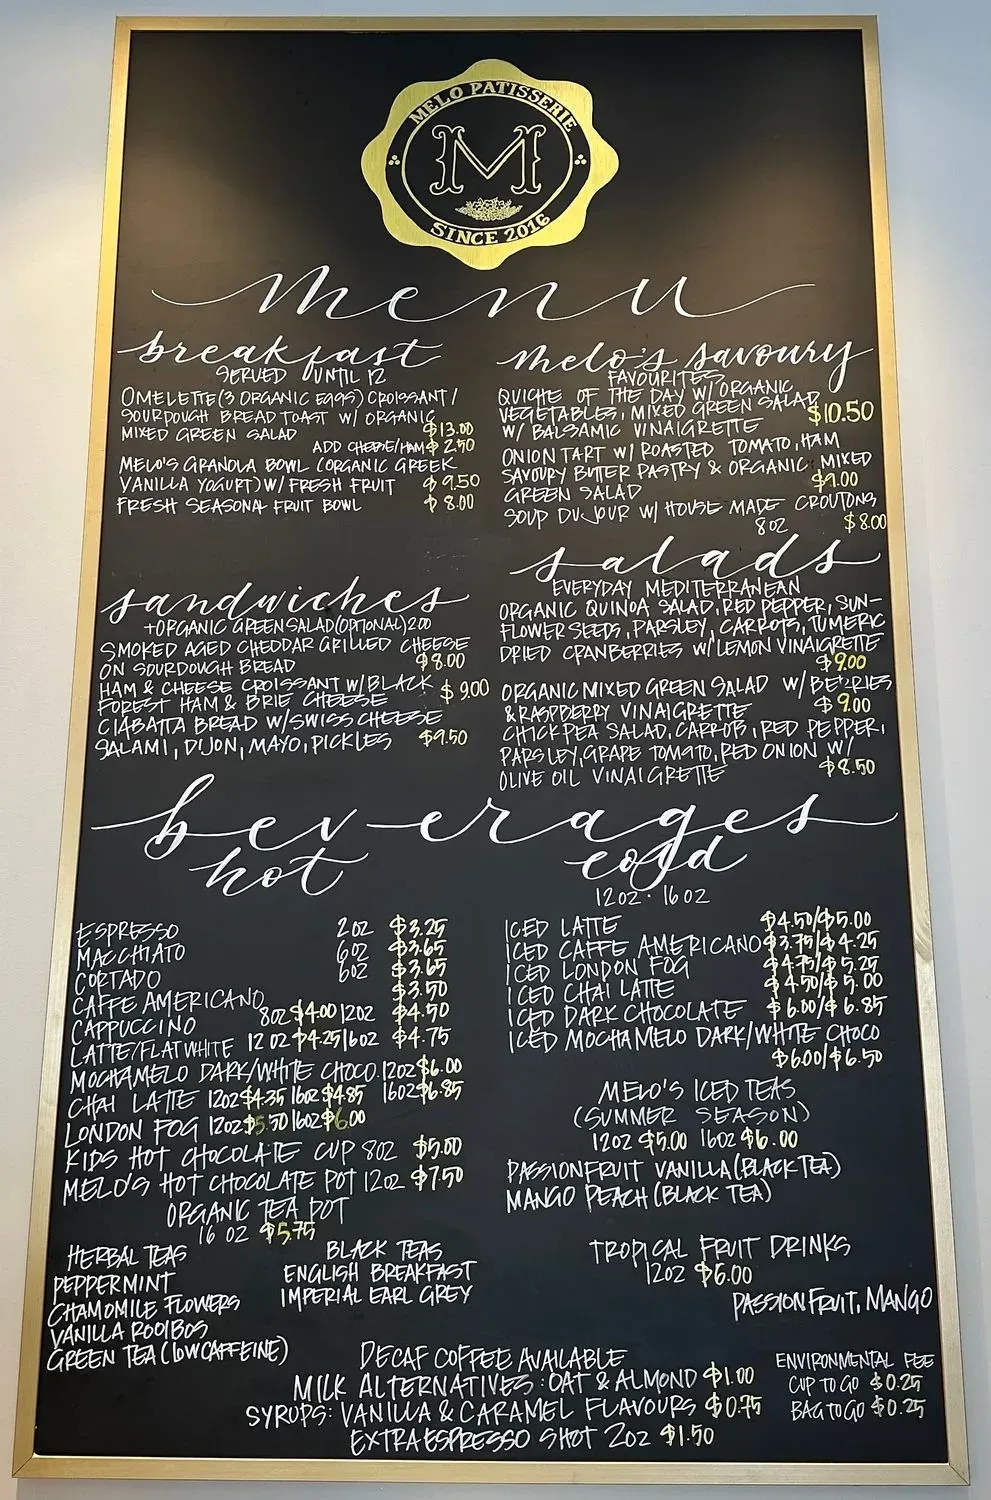 MELO PATISSERIE
M
SINCE 2016
menu
breakfast
SERVED UNTIL 12
OMELETTE (3 ORGANIC EGGS) CROISSANT/
SOURDOUGH BREAD TOAST W/ ORGANIC
MIXED GREEN SALAD $13.00
ADD CHEESE/HAM $2.50
MELO'S GRANOLA BOWL (ORGANIC GREEK
VANILLA YOGURT) W/ FRESH FRUIT $9.50
FRESH SEASONAL FRUIT BOWL $8.00
melo's savoury
FAVOURITES
QUICHE OF THE DAY W/ ORGANIC
VEGETABLES, MIXED GREEN SALAD $10.50
W/ BALSAMIC VINAIGRETTE
ONION TART W/ ROASTED TOMATO, HAM
SAVOURY BUTTER PASTRY & ORGANIC MIXED
GREEN SALAD $9.00
SOUP DU JOUR W/ HOUSE MADE CROUTONS
8OZ $8.00
sandwiches
+ORGANIC GREEN SALAD (OPTIONAL) 2.00
SMOKED AGED CHEDDAR GRILLED CHEESE
ON SOURDOUGH BREAD $8.00
HAM & CHEESE CROISSANT W/ BLACK $9.00
FOREST HAM & BRIE CHEESE
CIABATTA BREAD W/ SWISS CHEESE
SALAMI, DIJON, MAYO, PICKLES $9.50
salads
EVERYDAY MEDITERRANEAN
ORGANIC QUINOA SALAD, RED PEPPER, SUN-
FLOWER SEEDS, PARSLEY, CARROTS, TUMERIC
DRIED CRANBERRIES W/ LEMON VINAIGRETTE
$9.00
ORGANIC MIXED GREEN SALAD W/ BERRIES
& RASPBERRY VINAIGRETTE $9.00
CHICKPEA SALAD, CARROTS, RED PEPPER,
PARSLEY, GRAPE TOMATO, RED ONION W/
OLIVE OIL VINAIGRETTE $8.50
beverages
hot
ESPRESSO 2OZ $3.25
MACCHIATO 6OZ $3.65
CORTADO 6OZ $3.65
CAFFE AMERICANO $3.50
CAPPUCCINO 8OZ $4.00 12OZ $4.50
LATTE/FLAT WHITE 12OZ $4.25 16OZ $4.75
MOCHAMELO DARK/WHITE CHOCO. 12OZ $6.00
16OZ $6.85
CHAI LATTE 12OZ $4.35 16OZ $4.85
LONDON FOG 12OZ $5.50 16OZ $6.00
KIDS HOT CHOCOLATE CUP 8OZ $5.00
MELO'S HOT CHOCOLATE POT 12OZ $7.50
ORGANIC TEA POT
16 OZ $5.75
HERBAL TEAS
PEPPERMINT
CHAMOMILE FLOWERS
VANILLA ROOIBOS
GREEN TEA (LOW CAFFEINE)
BLACK TEAS
ENGLISH BREAKFAST
IMPERIAL EARL GREY
cold
12OZ · 16OZ
ICED LATTE $4.50/$5.00
ICED CAFFE AMERICANO $3.75/$4.25
ICED LONDON FOG $4.75/$5.25
ICED CHAI LATTE $4.50/$5.00
ICED DARK CHOCOLATE $6.00/$6.85
ICED MOCHAMELO DARK/WHITE CHOCO
$6.00/$6.50
MELO'S ICED TEAS
(SUMMER SEASON)
12OZ $5.00 16OZ $6.00
PASSIONFRUIT VANILLA (BLACK TEA)
MANGO PEACH (BLACK TEA)
TROPICAL FRUIT DRINKS
12OZ $6.00
PASSION FRUIT, MANGO
DECAF COFFEE AVAILABLE
MILK ALTERNATIVES: OAT & ALMOND $1.00
SYRUPS: VANILLA & CARAMEL FLAVOURS $0.75
EXTRA ESPRESSO SHOT 2OZ $1.50
ENVIRONMENTAL FEE
CUP TO GO $0.25
BAG TO GO $0.25